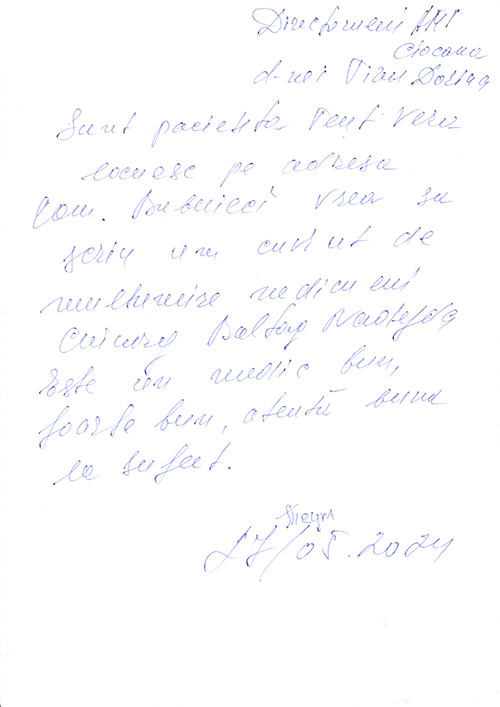 Directorului AMT
Ciocana
d-nei Tian
Sunt pacienta Tent Vera
locuesc pe adresa
Com. Bubuieci vrea sa
scriu un cuvint de
multumire medicului
Baltag Nadejda
Este un medic bun,
foarte bun, atentă buna
la suflet.
/05.2024